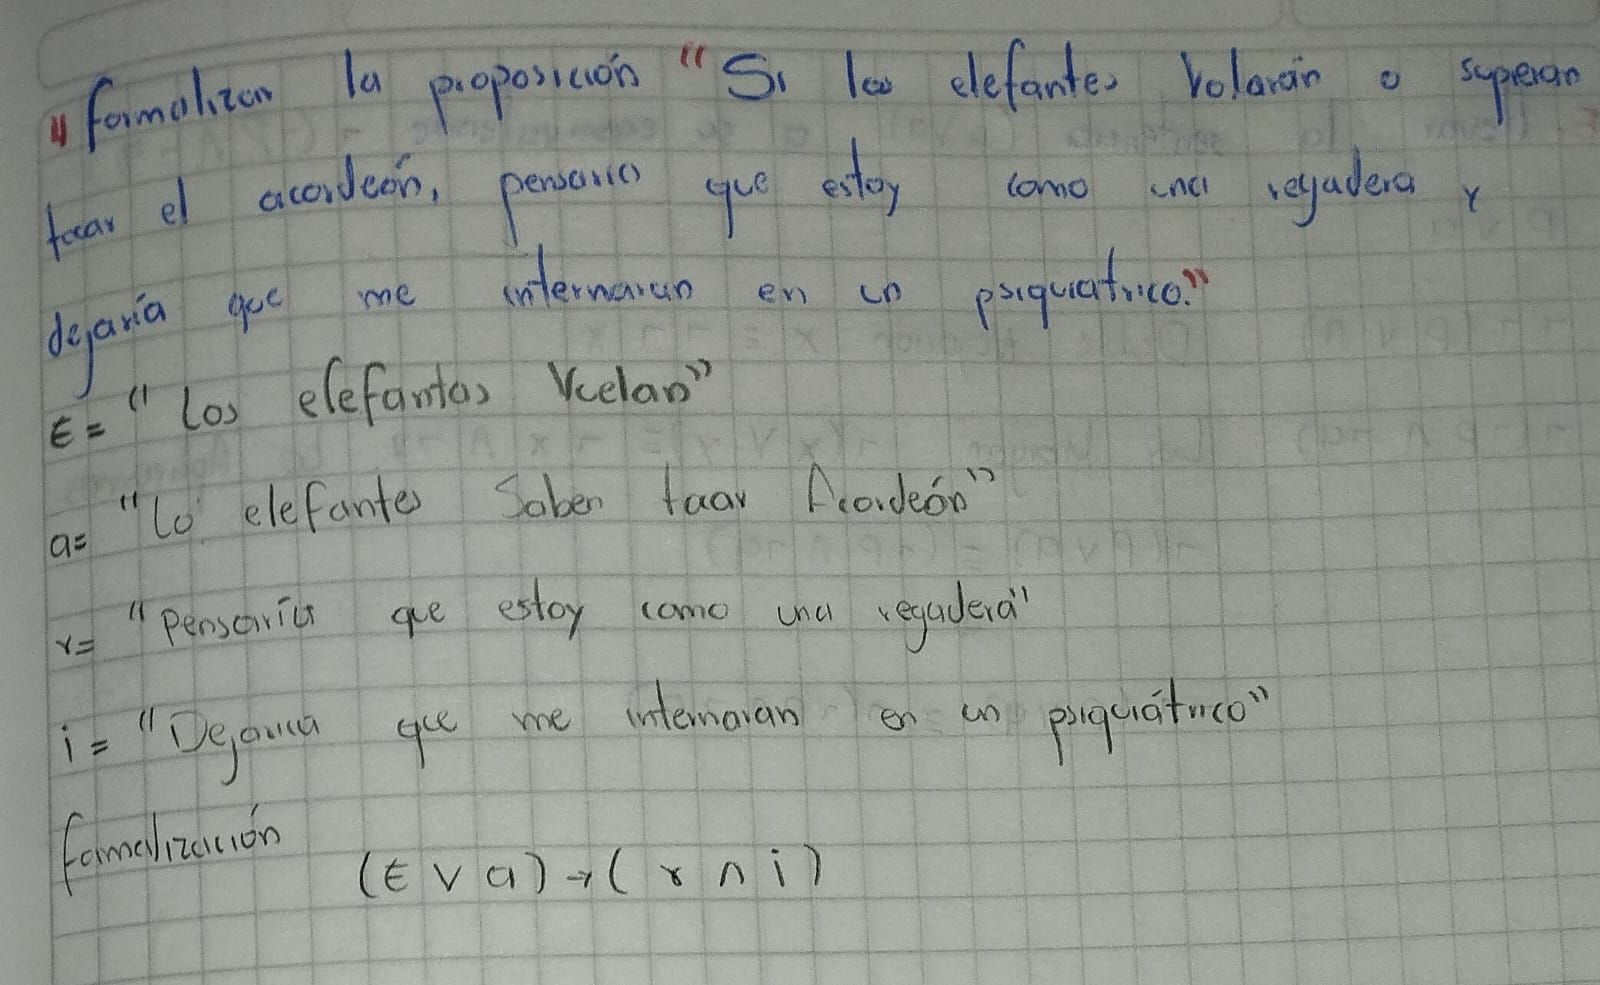 " formalizan la proposición "Si los elefantes Volarán o superan
tocar el acordeón, pensaria que estoy como una regadera y
dejaría que me internaran en un psiquiatrico."
E= "Los elefantas Vuelan"
a= "Lo elefantes Saben tocar Acordeón"
r= "Pensaría que estoy como una regadera"
i= "Dejaria que me internaran en un psiquiátrico"
formalización
(E ∨ a) → ( r ∧ i )